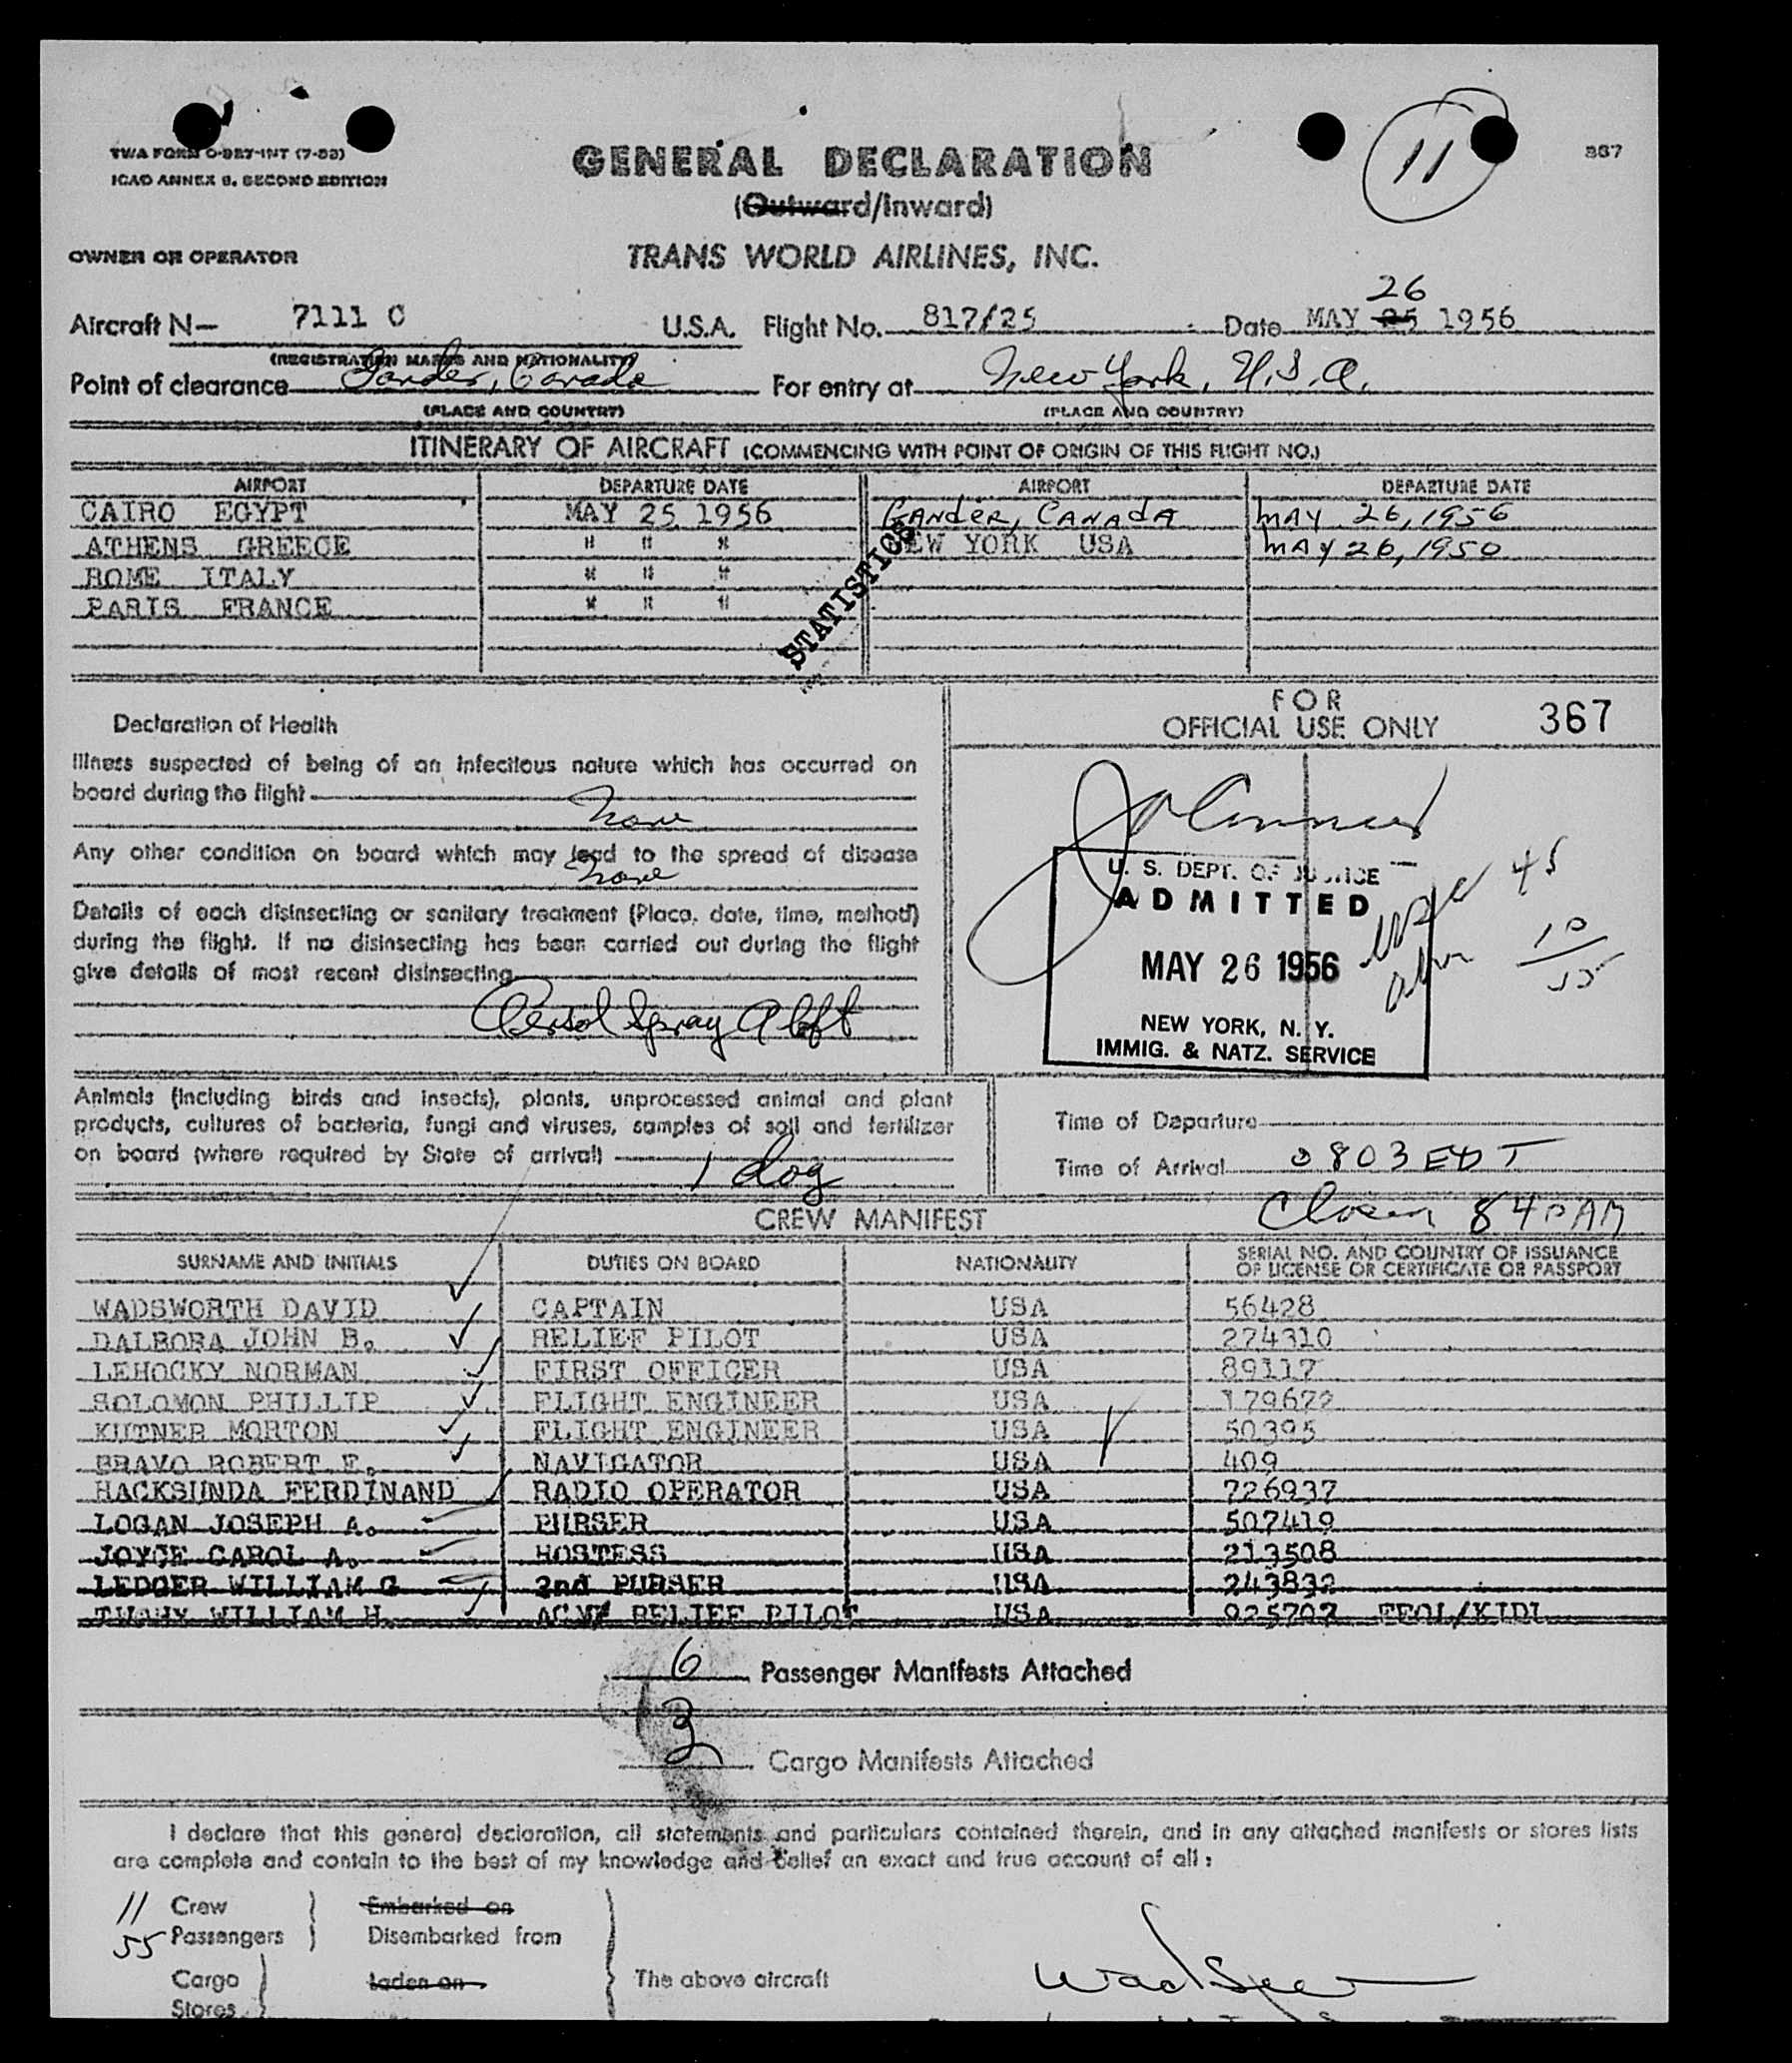 TWA FORM O-927-INT (7-53)
ICAO ANNEX 9, SECOND EDITION
GENERAL DECLARATION
(Outward/Inward)
11
367
OWNER OR OPERATOR
TRANS WORLD AIRLINES, INC.
26
Aircraft N— 7111 C U.S.A. Flight No. 817/25 Date MAY 25 1956
(REGISTRATION MARKS AND NATIONALITY)
Point of clearance Gander, Canada For entry at New York, U.S.A.
(PLACE AND COUNTRY) (PLACE AND COUNTRY)
ITINERARY OF AIRCRAFT (COMMENCING WITH POINT OF ORIGIN OF THIS FLIGHT NO.)
AIRPORT DEPARTURE DATE AIRPORT DEPARTURE DATE
CAIRO EGYPT MAY 25 1956 GANdER, CANAdA MAY 26, 1956
ATHENS GREECE " " " NEW YORK USA MAY 26, 1950
ROME ITALY " " "
PARIS FRANCE " " "
STATISTICS
FOR
OFFICIAL USE ONLY 367
Declaration of Health
Illness suspected of being of an infectious nature which has occurred on
board during the flight
None
Any other condition on board which may lead to the spread of disease
None
Details of each disinsecting or sanitary treatment (Place, date, time, method)
during the flight. If no disinsecting has been carried out during the flight
give details of most recent disinsecting
Aerosol Spray Aloft
U. S. DEPT. OF JUSTICE
ADMITTED
MAY 26 1956
NEW YORK, N. Y.
IMMIG. & NATZ. SERVICE
USC 45
alien 10
55
Animals (including birds and insects), plants, unprocessed animal and plant
products, cultures of bacteria, fungi and viruses, samples of soil and fertilizer
on board (where required by State of arrival)
1 dog
Time of Departure
Time of Arrival 0803 EDT
Closed 840 AM
CREW MANIFEST
SURNAME AND INITIALS DUTIES ON BOARD NATIONALITY SERIAL NO. AND COUNTRY OF ISSUANCE
OF LICENSE OR CERTIFICATE OR PASSPORT
WADSWORTH DAVID CAPTAIN USA 56428
DALBORA JOHN B. RELIEF PILOT USA 274310
LEHOCKY NORMAN FIRST OFFICER USA 89117
SOLOMON PHILLIP FLIGHT ENGINEER USA 179672
KUTNER MORTON FLIGHT ENGINEER USA 50395
BRAVO ROBERT E. NAVIGATOR USA 409
HACKSUNDA FERDINAND RADIO OPERATOR USA 726937
LOGAN JOSEPH A. PURSER USA 507419
JOYCE CAROL A. HOSTESS USA 213508
LEDGER WILLIAM G 2nd PURSER USA 243832
WILLIAM H. RELIEF PILOT USA 925707
6 Passenger Manifests Attached
3
2 Cargo Manifests Attached
I declare that this general declaration, all statements and particulars contained therein, and in any attached manifests or stores lists
are complete and contain to the best of my knowledge and belief an exact and true account of all:
11 Crew Embarked on
55 Passengers Disembarked from
Cargo Laden on The above aircraft
Stores